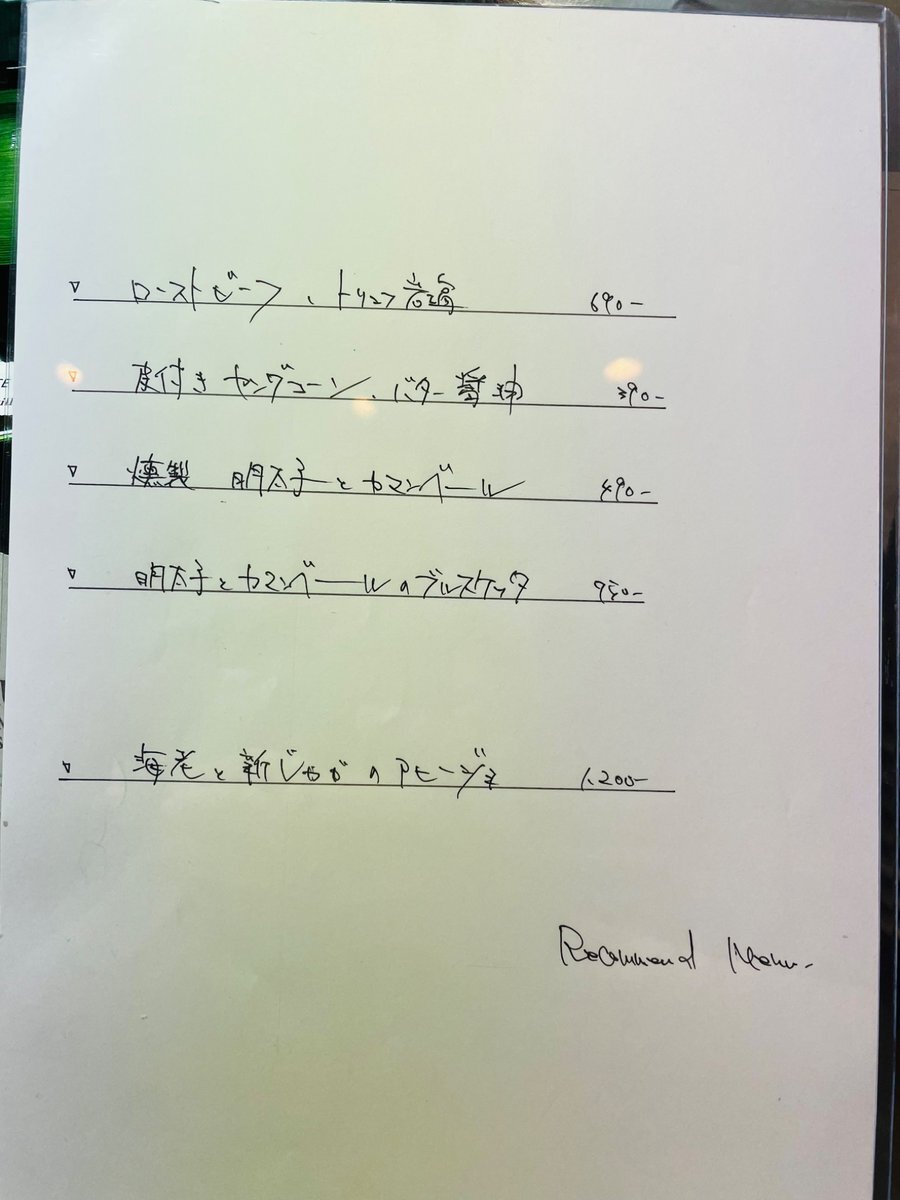 ▽ ローストビーフ、トリュフ岩塩 690-
▽ 皮付きヤングコーン、バター醤油 390-
▽ 燻製 明太子とカマンベール 490-
▽ 明太子とカマンベールのブルスケッタ 950-
▽ 海老と新じゃがのアヒージョ 1,200-
Recommend Menu-